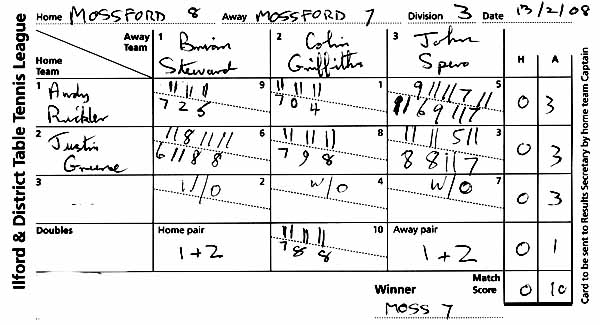 Ilford & District Table Tennis League
Home MOSSFORD 8 Away MOSSFORD 7 Division 3 Date 13/2/08
Away Team
Home Team
1 Brian Steward
2 Colin Griffiths
3 John Spero
H A
1 Andy Rickler
9
11 11 11
7 2 5
1
11 11 11
7 0 4
5
9 11 11 7 11
11 6 9 11
0 3
2 Justin Greene
6
11 8 11 11
6 11 8 8
8
11 11 11
7 9 8
3
11 11 5 11
8 8 11 7
0 3
3
W/O 2
W/O 4
W/O 7
0 3
Doubles
Home pair
1+2
10
11 11 11
7 8 8
Away pair
1+2
0 1
Winner
MOSS 7
Match Score
0 10
Card to be sent to Results Secretary by home team Captain